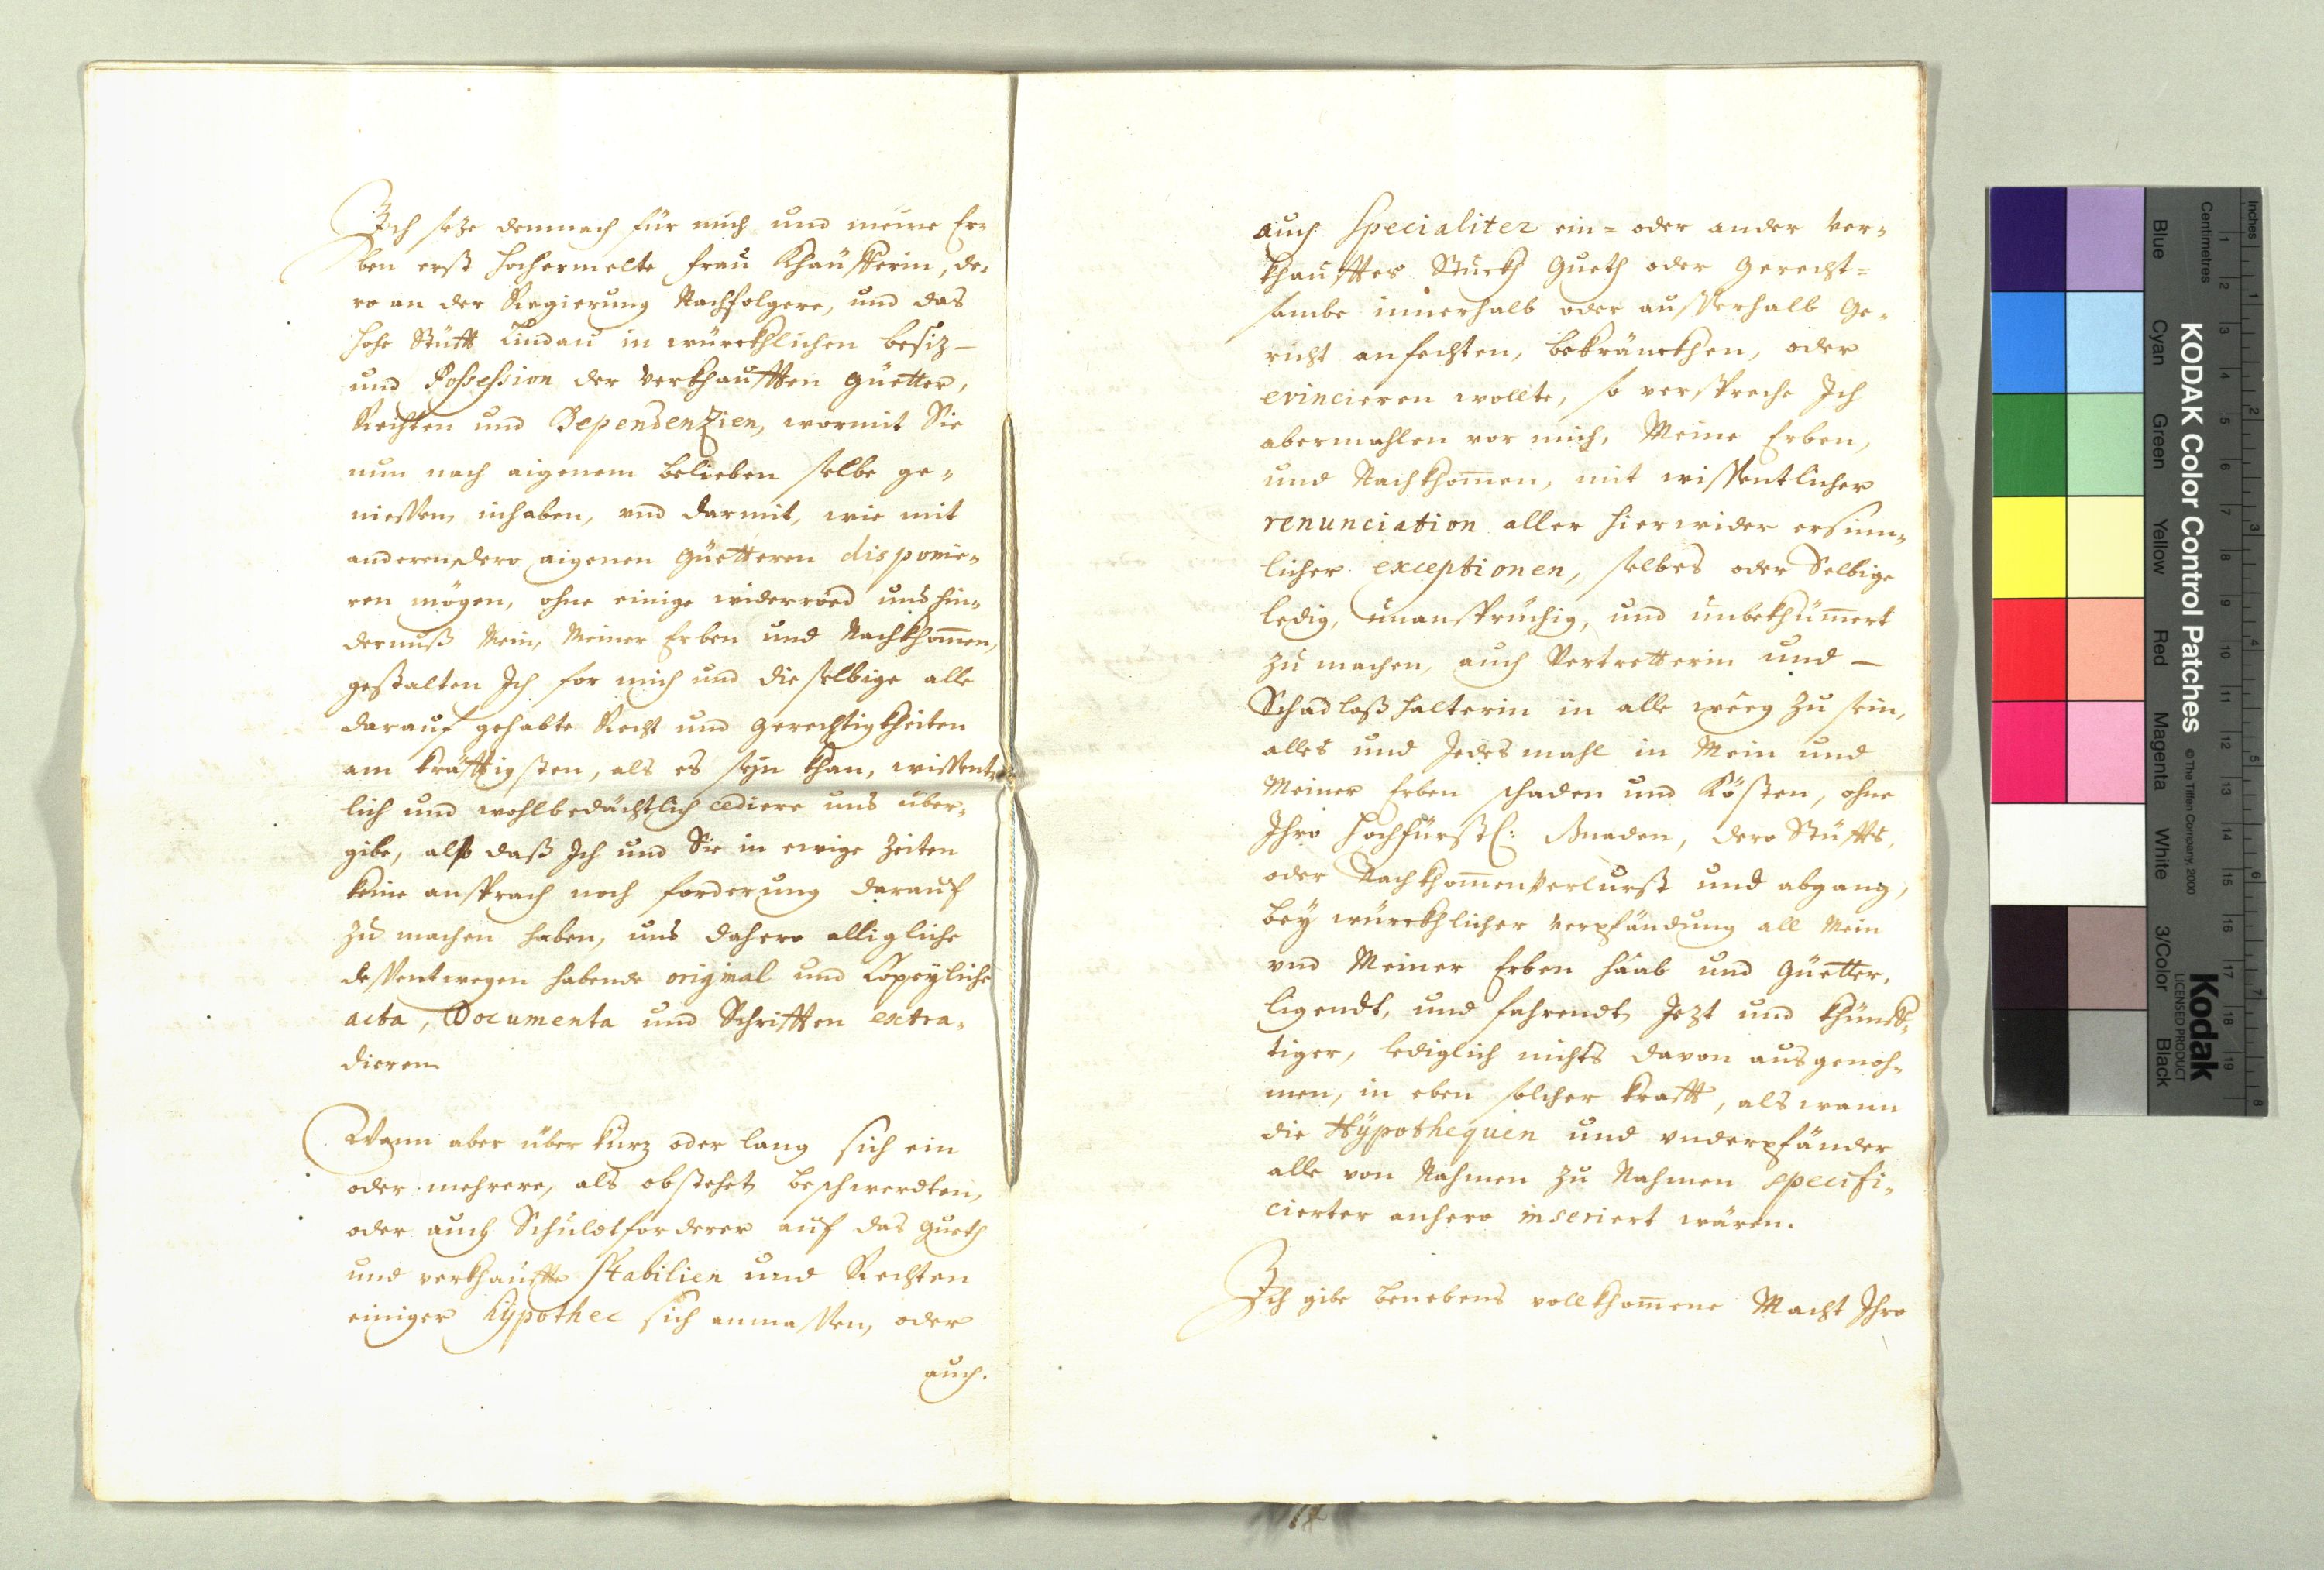 Ich seze demnach für mich und meine Er-
ben erst hochermelte frau Khäufferin, de-
ro an der Regierung Nachfolgere, und das
hohe Stüfft Lindau in würckhlichen besiz-
und Possession der verkhaufften güetter,
Rechten und Dependenzien, wormit Sie
nun nach aigenem belieben selbe ge-
niessen, inhaben, vnd darmit, wie mit
anderen dero aigenen güetteren disponie-
ren mögen, ohne einige widerröd und hin-
dernuß Mein, Meiner Erben und Nachkhom̄en,
gestalten Ich for mich und dieselbige alle
darauf gehabte Recht und gerechtigkheiten
am kräfftigsten, als es seyn khan, wissent-
lich und wohlbedächtlich cediere und über-
gibe, also daß Ich und Sie in ewige Zeiten
keine ansprach noch forderung darauf
zu machen haben, und dahero alligliche
dessentwegen habende original und Copeyliche
acta, Documenta und Schrifften extra-
dieren.
Wann aber über kurz oder lang sich ein
oder mehrere, als obstehet, beschwerdten,
oder auch Schuldtforderer auf das gueth
und verkhauffte Stabilien und Rechten
einiger hypothec sich anmassen, oder
auch.
auch Specialiter ein= oder ander ver-
khaufftes Stuckh Gueth oder Gerecht=
sambe innerhalb oder ausserhalb Ge-
richt anfechten, bekränckhen, oder
evincieren wollte, so verspreche Ich
abermahlen vor mich, Meine Erben,
und Nachkhom̄en, mit wissentlicher
renunciation aller hierwider ersinn-
licher exceptionen, selbes oder Selbige
ledig, unansprüchig, und unbekhüm̄ert
zu machen, auch Vertretterin und -
Schadloßhalterin in alle weeg zu sein,
alles und Jedesmahl in Mein und
Meiner Erben schaden und Kösten, ohne
Ihro Hochfürstl: Gnaden, dero Stüffts,
oder Nachkhom̄en Verlurst und abgang,
bey würckhlicher verpfändung all Mein
vnd Meiner Erben haab und Güetter,
ligendt, und fahrendt, Jezt und khünff-
tiger, lediglich nichts davon ausgenoh-
men, in eben solcher krafft, als wann
die Hypothequen und vnderpfänder
alle von Nahmen zu Nahmen specifi-
cierter anhero inseriert wären.
Ich gibe benebens vollkhom̄ene Macht Ihro
KODAK Color Control Patches © The Tiffen Company, 2000
Kodak
LICENSED PRODUCT
Inches 1 2 3 4 5 6 7 8
Centimetres 1 2 3 4 5 6 7 8 9 10 11 12 13 14 15 16 17 18 19
Blue Cyan Green Yellow Red Magenta White 3/Color Black